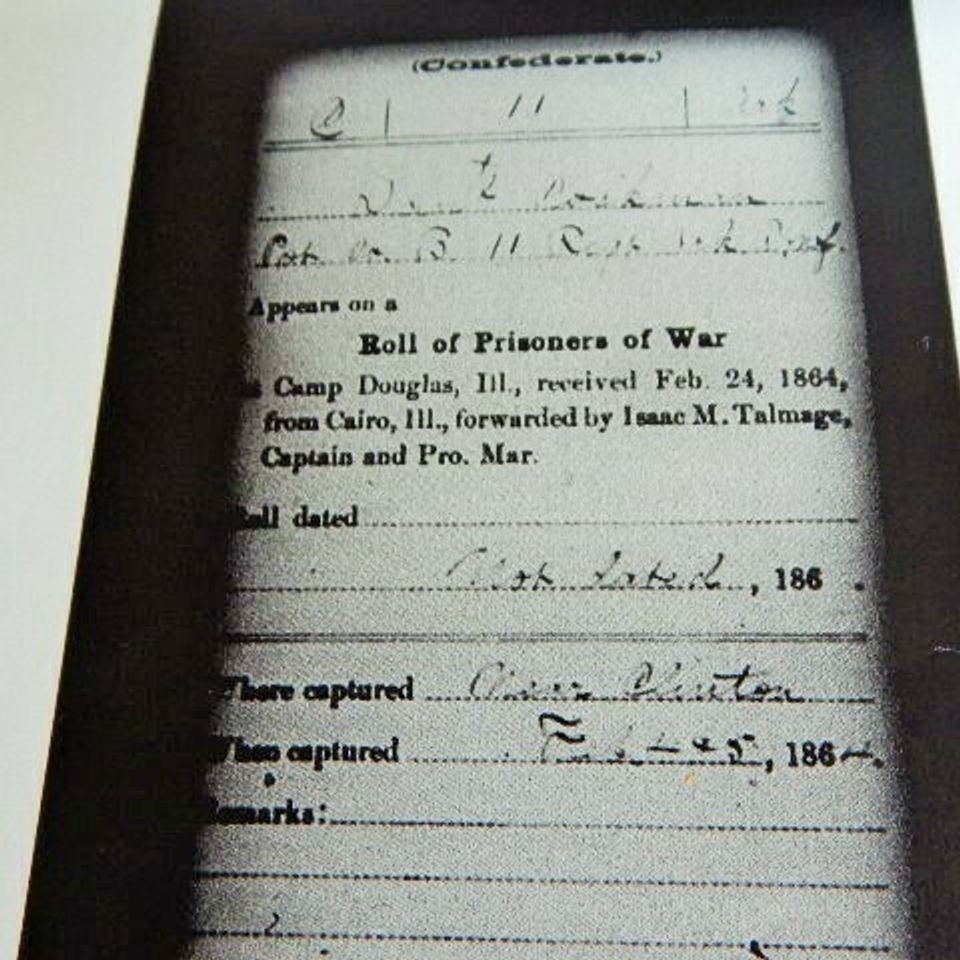 (Confederate.)
11
Co. B 11 Ark
Appears on a
Roll of Prisoners of War
Camp Douglas, Ill., received Feb. 24, 1864,
from Cairo, Ill., forwarded by Isaac M. Talmage,
Captain and Pro. Mar.
Roll dated
Not dated, 186 .
Where captured Clinton
When captured 5, 1864.
Remarks: